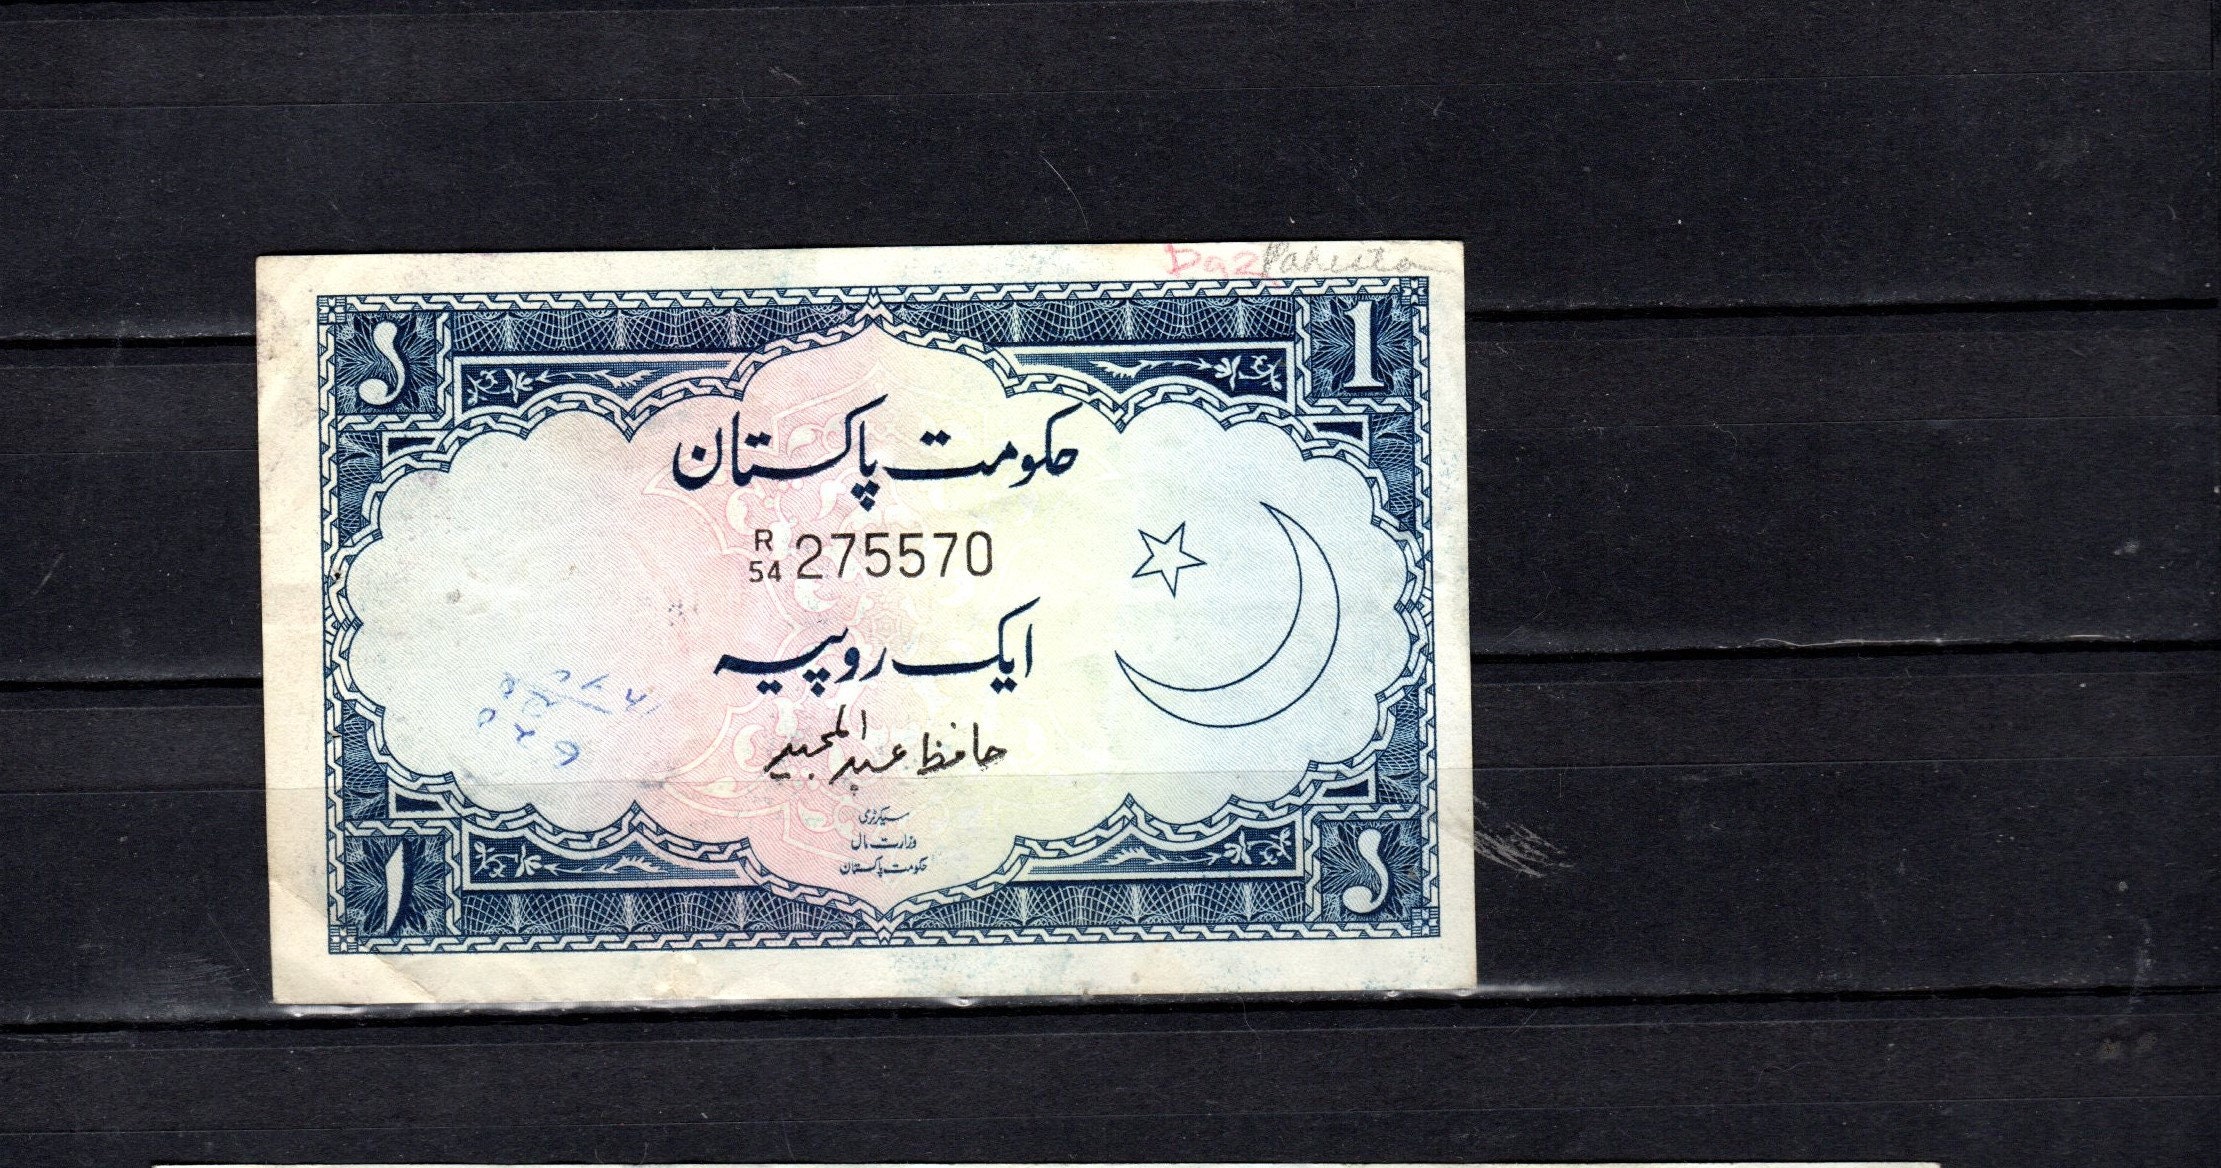 Pakistan
1
حکومت پاکستان
R
54 275570
ایک روپیہ
حافظ عبدالمجید
سیکرٹری
وزارت مال
حکومت پاکستان